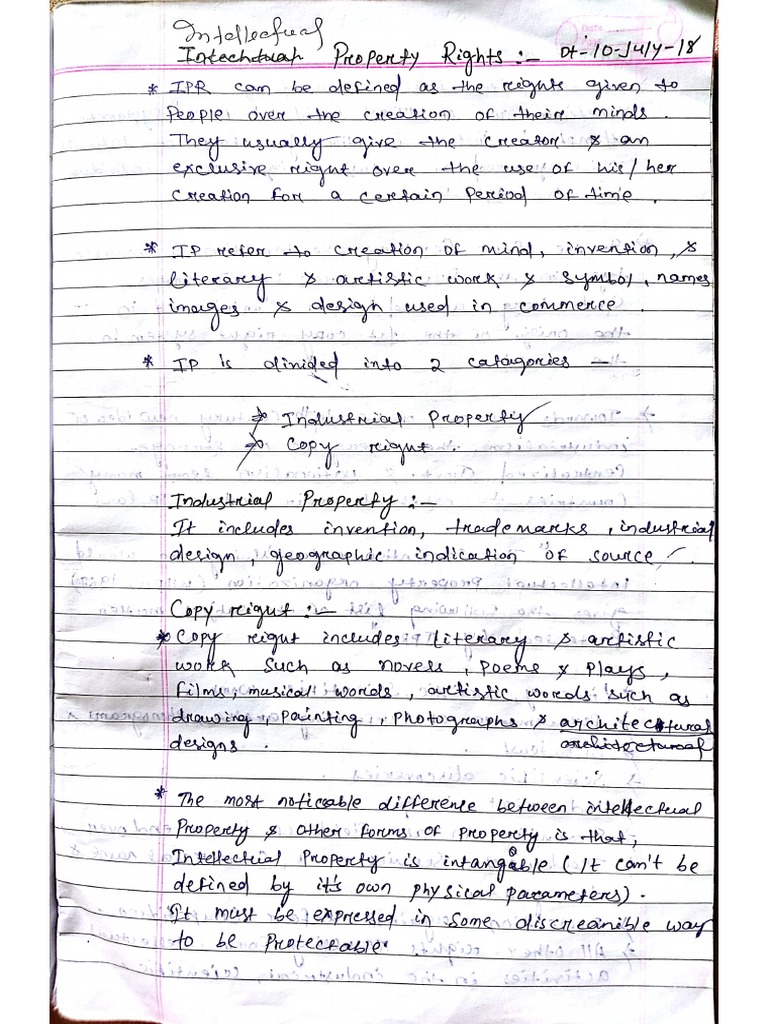 Intellectual
Intechtual Property Rights :- Dt- 10-July-18
* IPR can be defined as the rights given to
People over the creation of their minds.
They usually give the creator & an
exclusive right over the use of his/her
creation for a certain Period of time.
* IP refer to creation of mind, invention, &
literary & artistic work & symbol, names
images & design used in commerce.
* IP is divided into 2 catagories —
→ Industrial Property
→ Copy right.
Industrial Property :-
It includes invention, trademarks, industrial
design, geographic indication of source.
Copy right :-
* Copy right includes literary & artistic
work such as novess, Poems & Plays,
films, musical words, artistic words such as
drawing, painting, photographs & architectural
designs. architectural
* The most noticable difference between intellectual
Property & other forms of property is that,
Intellectual Property is intangible (It can't be
defined by it's own physical parameters).
It must be expressed in some discreanible way
to be Protectable.